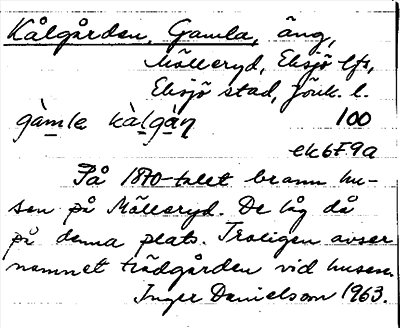 Kålgården, Gamla, äng,
Mölleryd, Eksjö lfs,
Eksjö stad, Jönk. l.
gàmla kàlgàn 100
ek 6F9a
På 1870-talet brann hu-
sen på Mölleryd. De låg då
på denna plats. Troligen avser
namnet trädgården vid husen.
Inger Danielsson 1963.